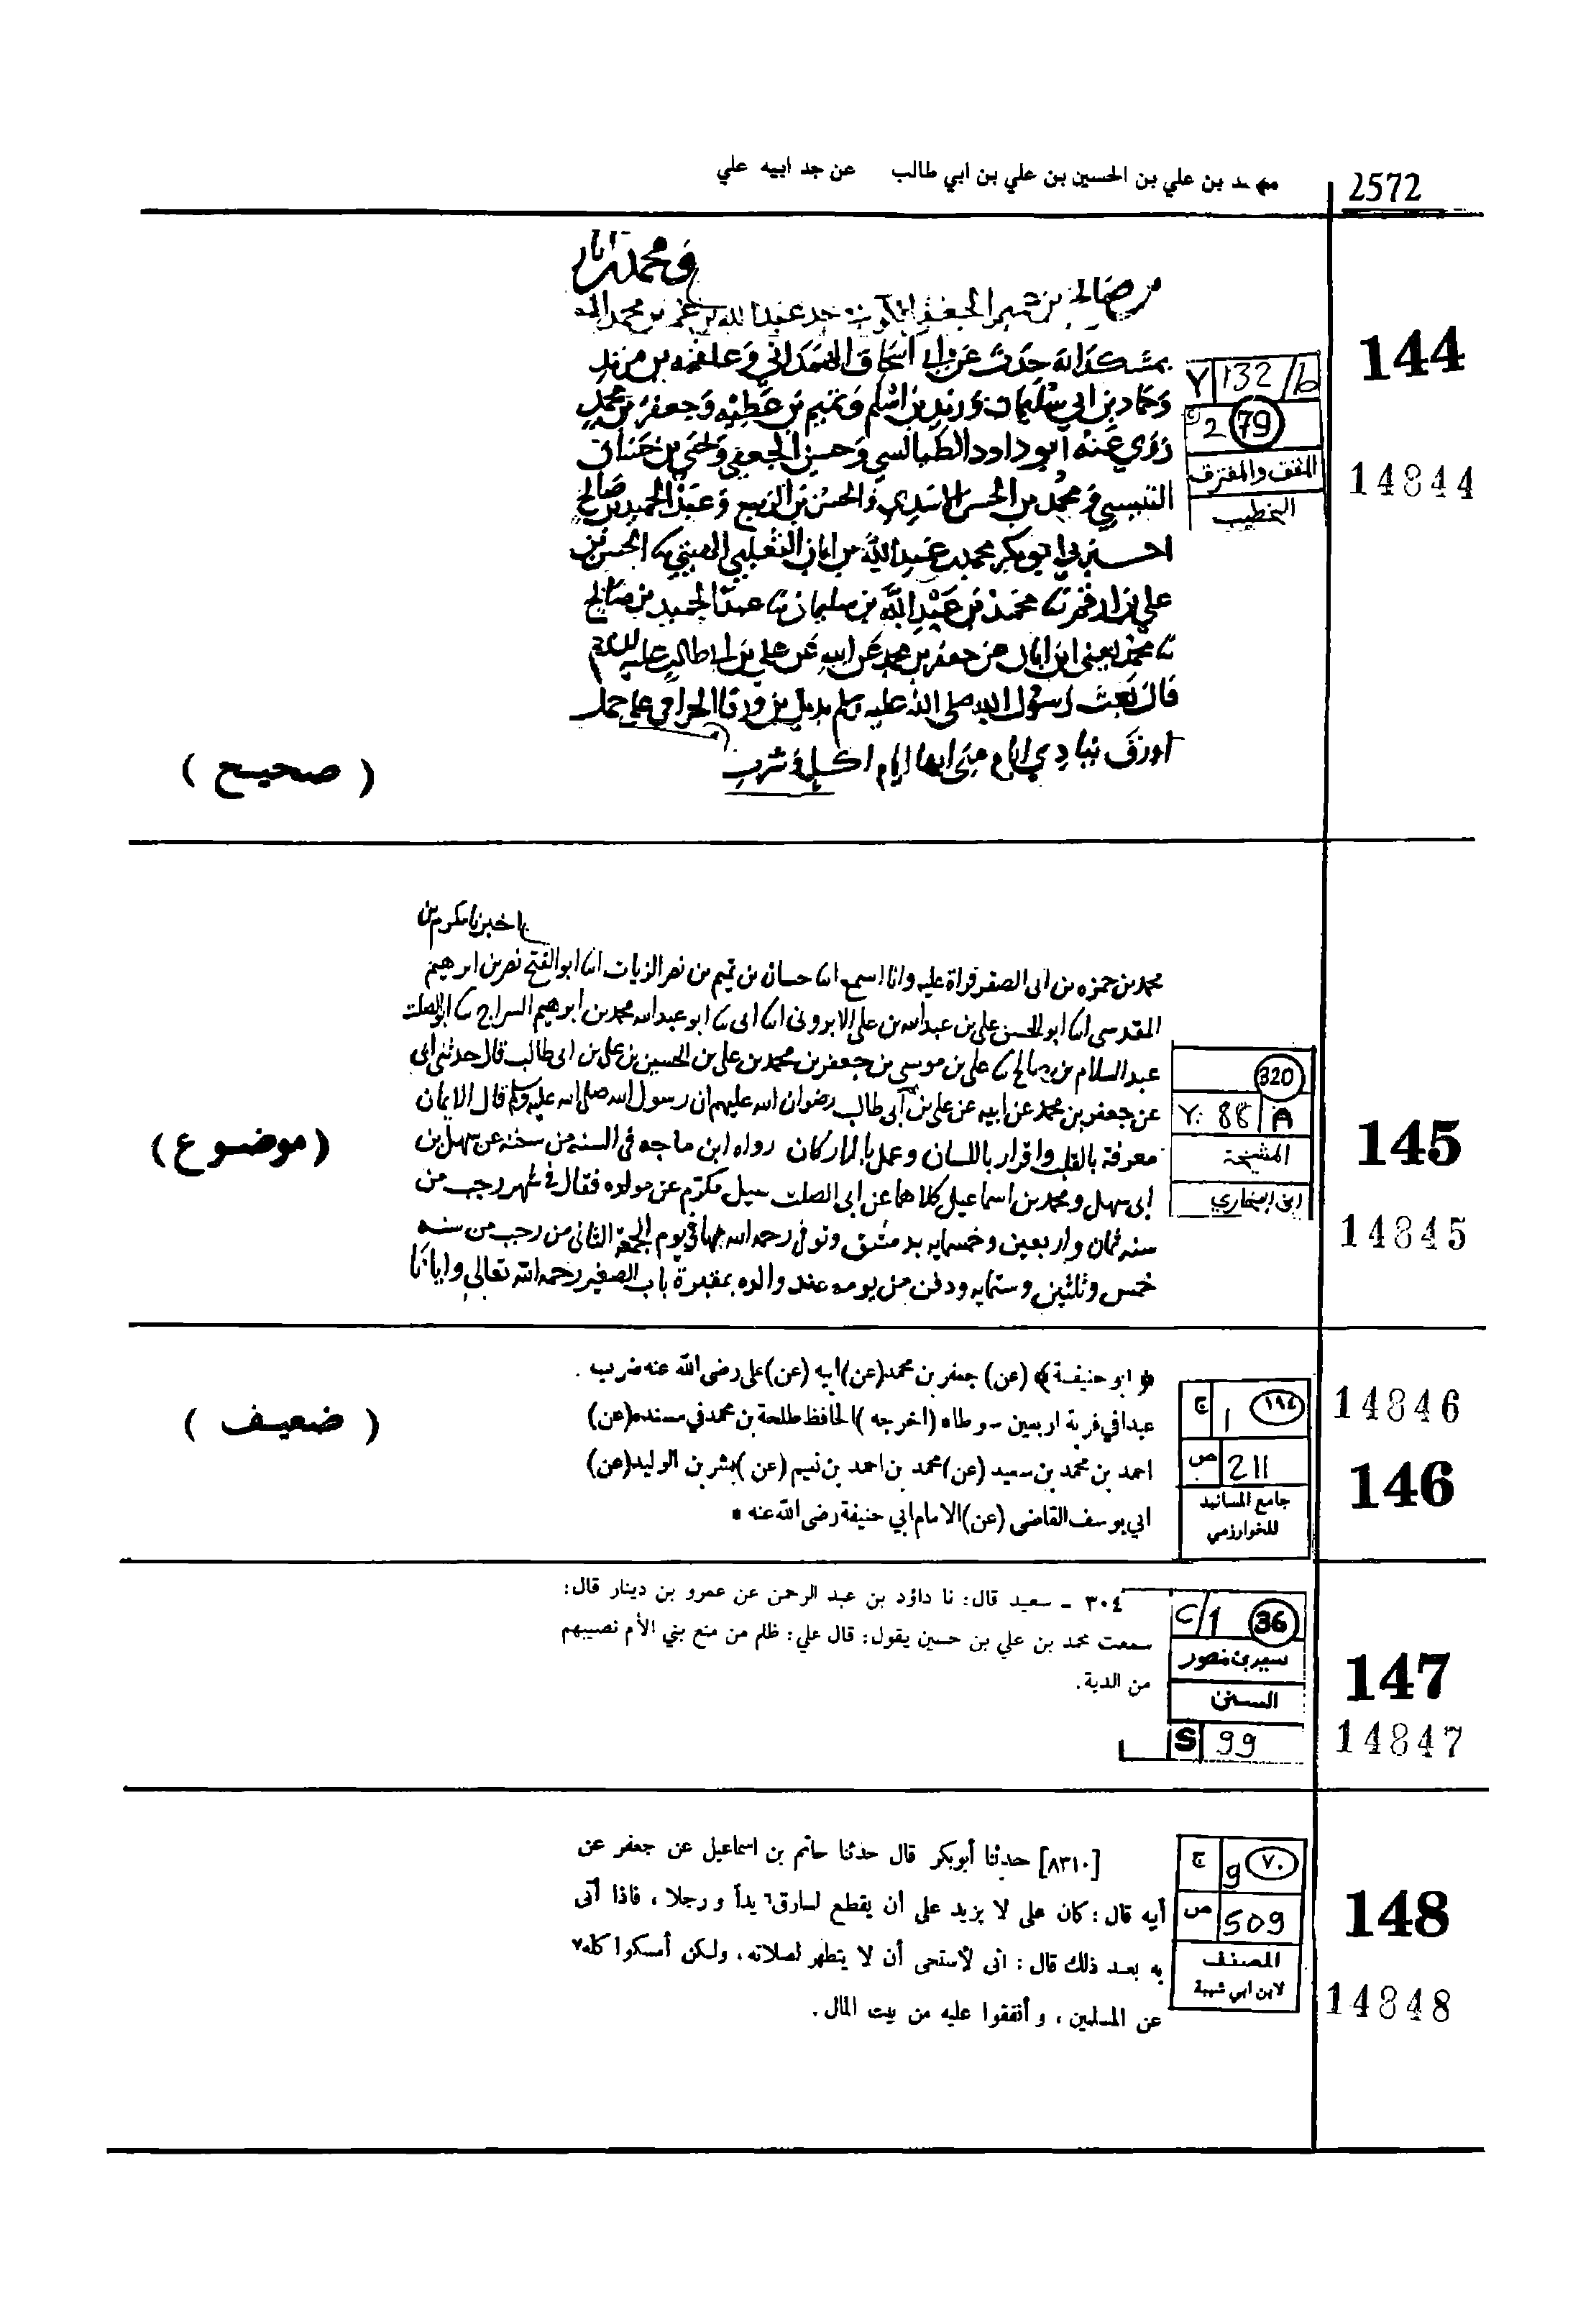 2572
محمد بن علي بن الحسين بن علي بن ابي طالب عن جد ابيه علي
144
14844
Y 132/b
2 79
المتفق والمفترق
الخطيب
ومحمد بن ابان
بن صالح بن
حدث عن ابي اسحاق الهمداني وعلقمه بن مرثد
وحماد بن ابي سليمان وزيد بن اسلم وجعفر بن محمد
روي عنه ابو داود الطيالسي وحسين الجعفي ويحيى بن حسان
التنيسي ومحمد بن الحسن الاسدي والحسن بن الربيع وعبد الحميد بن صالح
ابو بكر محمد بن عبد الله بن ابان التغلبي الهيتي نا الحسن بن
علي بن نا محمد بن عبد الله بن سليمان نا عبد الحميد بن صالح
نا محمد يعني ابن ابان عن جعفر بن محمد عن ابيه عن علي بن ابي طالب عليه السلام
قال بعث رسول الله صلى الله عليه وسلم بديل بن ورقا الخزاعي على جمل
اورق ينادي ايام منى انها ايام اكل وشرب
( صحيح )
145
14845
320
Y: 88/A
المشيخة
ابن البخاري
اخبرنا مكرم بن
محمد بن حمزه بن ابى الصقر قراة عليه وانا اسمع انا حسان بن تميم بن نصر الزيات انا ابو الفتح نصر بن ابرهيم
المقدسي انا ابو الحسن علي بن عبد الله بن علي انا ابى نا ابو عبد الله محمد بن ابرهيم السراج نا ابو الصلت
عبد السلام بن صالح نا علي بن موسى بن جعفر بن محمد بن علي بن الحسين بن علي بن ابى طالب قال حدثني ابى
عن جعفر بن محمد عن ابيه عن علي بن أبي طالب رضوان الله عليهم ان رسول الله صلى الله عليه وسلم قال الايمان
معرفة بالقلب واقرار باللسان وعمل بالاركان رواه ابن ماجه فى السنه من سننه عن سهل بن
ابى سهل ومحمد بن اسماعيل كلاهما عن ابى الصلت سيل مكرم عن مولده فقال فى شهر رجب من
سنه ثمان واربعين وخمسمايه بدمشق وتوفى رحمه الله بها في يوم الجمعة الثانى من رجب من سنه
خمس وثلثين وستمايه ودفن من يومه عند والده بمقبرة باب الصغير رحمه الله تعالى وايانا
(موضوع)
14846
146
ج ١ ١٩٤
ص 211
جامع المسانيد
للخوارزمي
﴿ابو حنيفة﴾ (عن) جعفر بن محمد (عن) ابيه (عن) على رضى الله عنه ضرب
عبدا في فرية اربعين سوطا (اخرجه) الحافظ طلحة بن محمد في مسنده (عن)
احمد بن محمد بن سعيد (عن) محمد بن احمد بن نسيم (عن) بشر بن الوليد (عن)
ابي يوسف القاضى (عن) الامام ابي حنيفة رضى الله عنه *
( ضعيف )
147
14847
C/1 36
سعيد بن منصور
السنن
S 99
٣٠٤ ــ سعيد قال: نا داؤد بن عبد الرحمن عن عمرو بن دينار قال:
سمعت محمد بن علي بن حسين يقول: قال علي: ظلم من منع بني الأم نصيبهم
من الدية.
148
14848
ج 9 ٧٠
ص 509
المصنف
لابن ابي شيبة
[٨٣١٠] حدثنا أبوبكر قال حدثنا حاتم بن اسماعيل عن جعفر عن
أبيه قال: كان على لا يزيد على أن يقطع لسارق٦ يدأ و رجلا، فاذا أتى
به بعد ذلك قال: انى لأستحى أن لا يتطهر لصلاته، ولكن أمسكوا كله٧
عن المسلمين، و أنفقوا عليه من بيت المال.